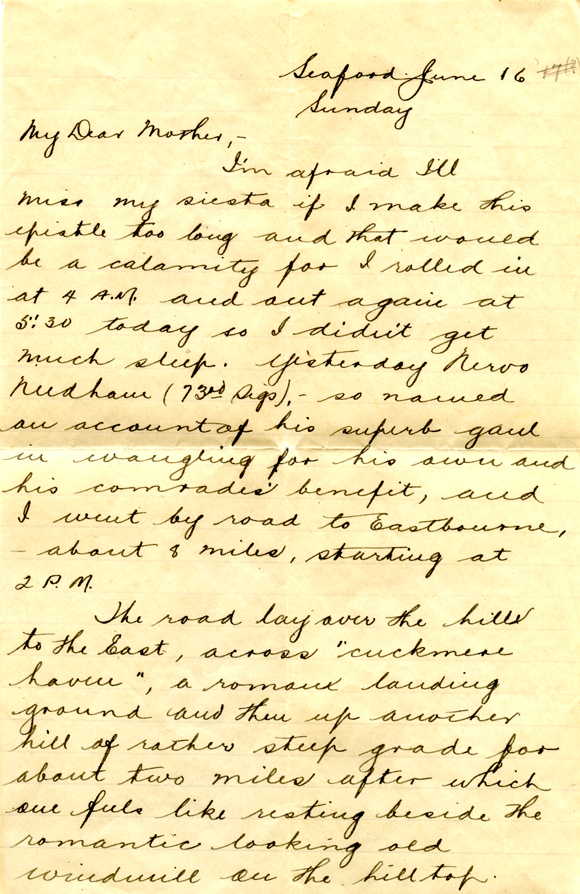 Seaford June 16
Sunday
My Dear Mother,-
I'm afraid I'll
miss my siesta if I make this
epistle too long and that would
be a calamity for I rolled in
at 4 A.M. and out again at
5:30 today so I didn't get
much sleep. Yesterday Nervo
Needham (73rd Sigs),- so named
on account of his superb gaul
in wangling for his own and
his comrades' benefit, and
I went by road to Eastbourne,
- about 8 miles, starting at
2 P.M.
The road lay over the hills
to the East, across "cuckmere
haven", a roman landing
ground and then up another
hill of rather steep grade for
about two miles after which
one feels like resting beside the
romantic looking old
windmill on the hill top.